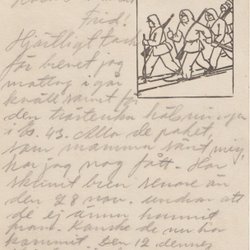 frid!
Hjärtligt tack
för brevet jag
mottog i går
kväll samt för
den hälsningen
i 43. Alla de paket,
som mamma sänt mig,
har jag nog fått. Har
skrivit brev senare än
den 28 nov. undrar att
de ej ännu kommit
fram. Kanske de nu ha
kommit. Den 12 dennes